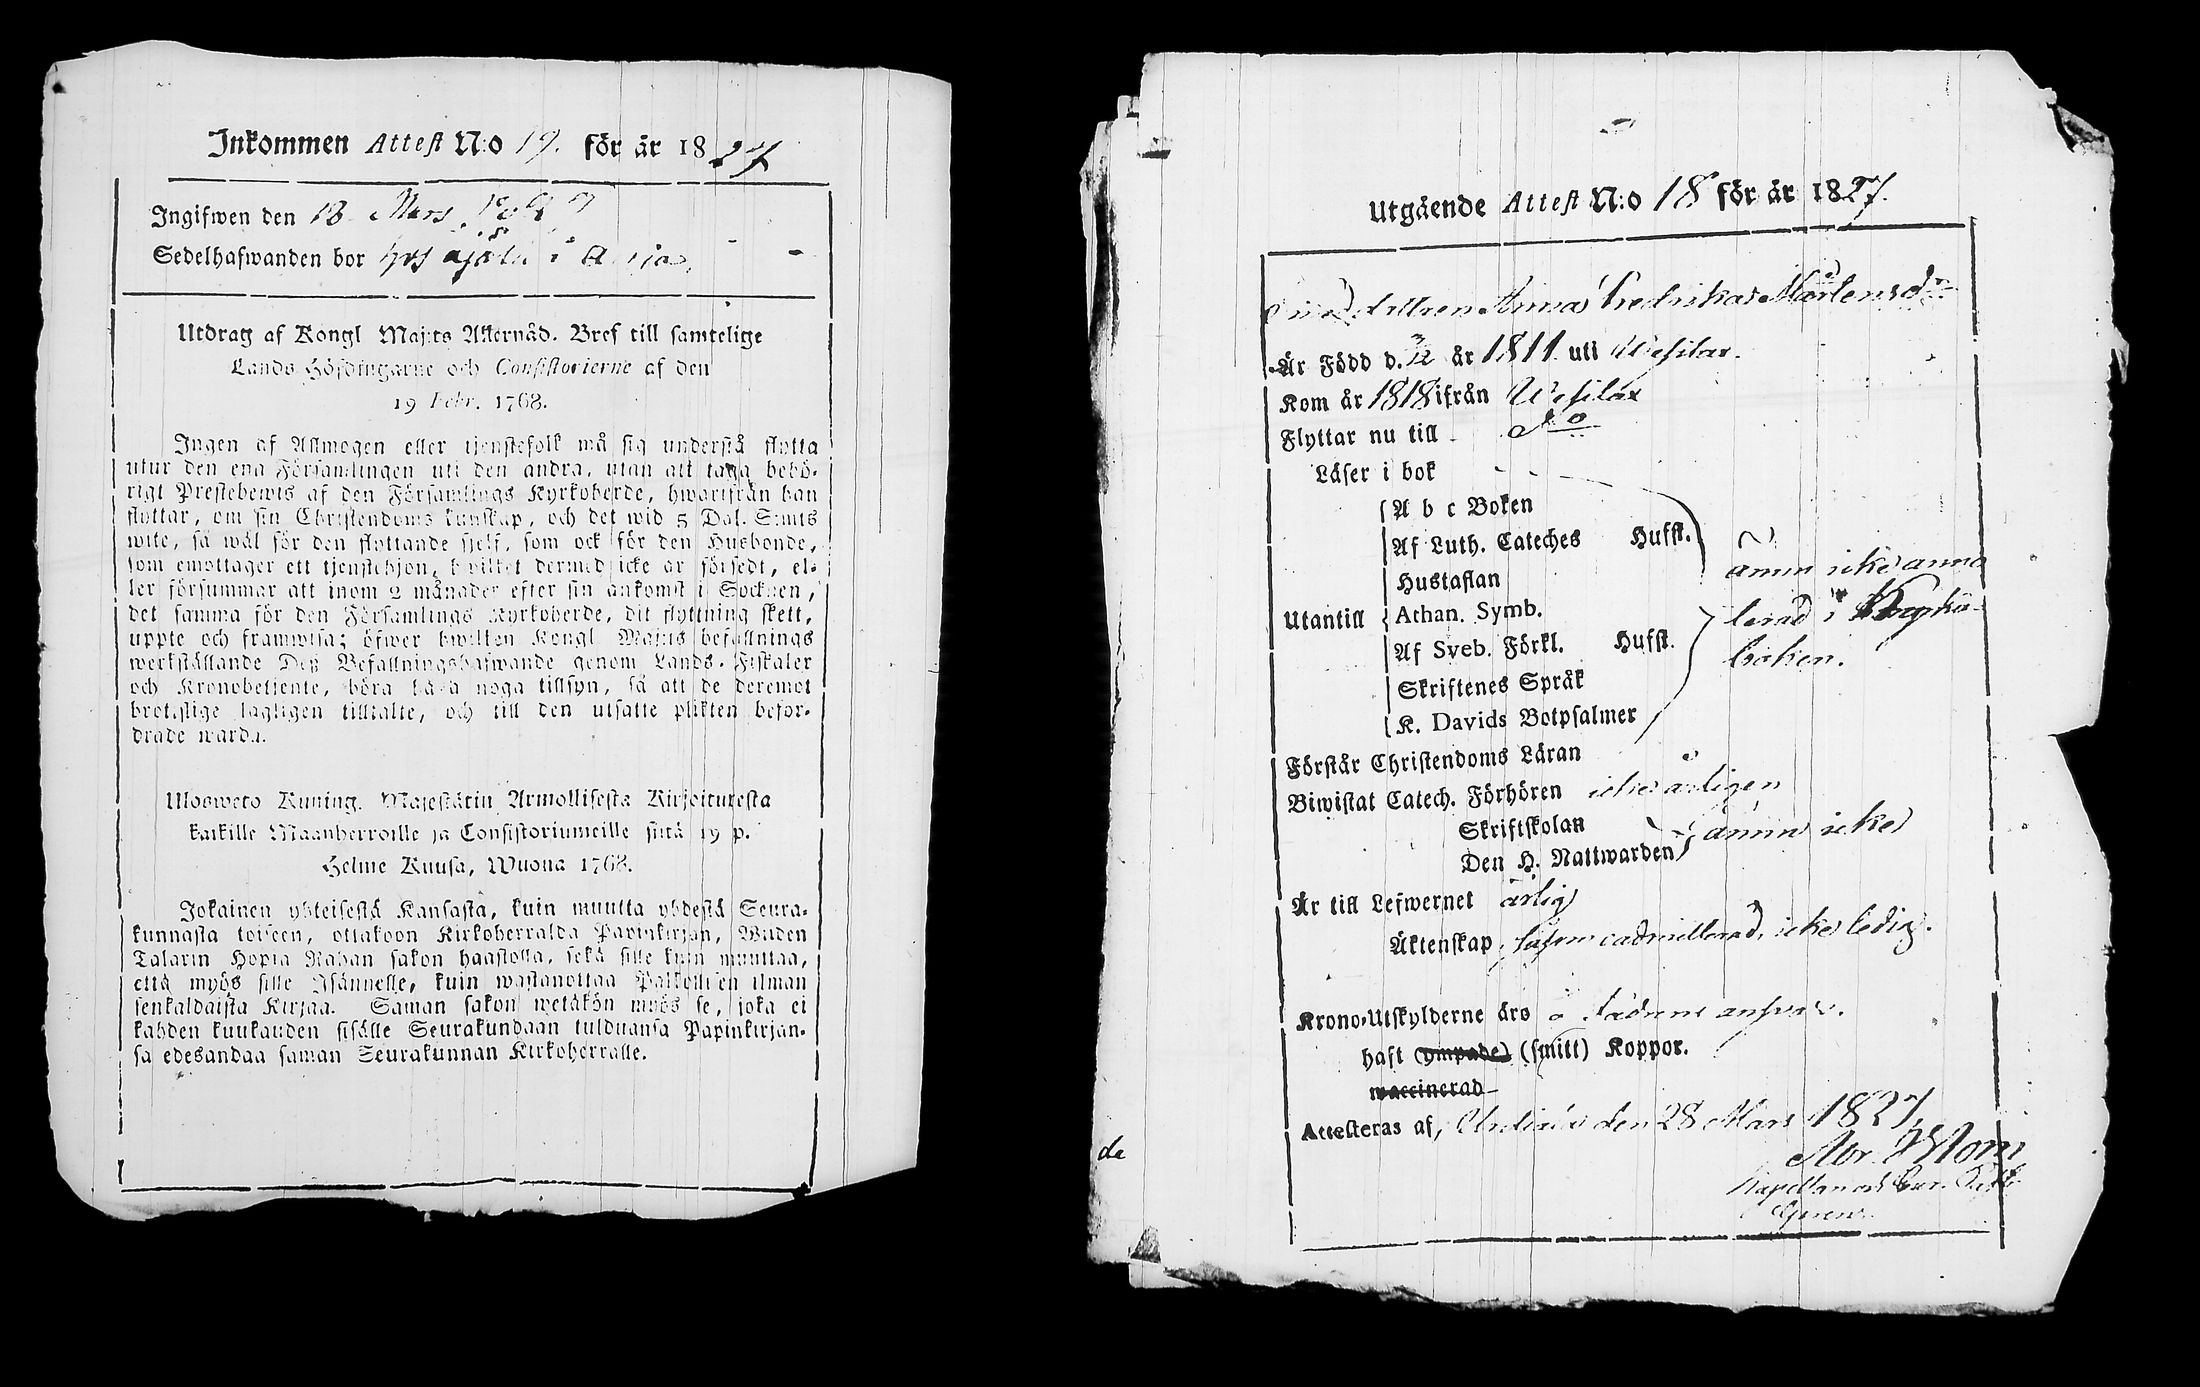 Inkommen Attest N:o 19. för år 1827
Ingifwen den 18 Mars 1827
Sedelhafwanden bor hos i
Utdrag af Kongl Maj:ts Allernåd. Bref till samtelige
Lands Höfdingarne och Consistorierne af den
19 Febr. 1768.
Ingen af Allmogen eller tjenstefolk må sig understå flytta
utur den ena Församlingen uti den andra, utan att taga behö-
rigt Prestebewis af den Församlings Kyrkoherde, hwarifrån han
flyttar, om sin Christendoms kunskap, och det wid 5 Dal. S:mts
wite, så wäl för den flyttande sjelf, som ock för den Husbonde,
som emottager ett tjenstehjon, hwilket dermed icke är försedt, el-
ler försummar att inom 2 månader efter sin ankomst i Socknen,
det samma för den Församlings Kyrkoherde, dit flyttning skett,
uppte och framwisa; öfwer hwilken Kongl Maj:ts befallnings
werkställande Deß Befallningshafwande genom Lands-Fiskaler
och Kronobetjente, böra hafwa noga tillsyn, så att de deremot
brotslige lagligen tilltalte, och till den utsatte plikten befor-
drade warda.
Ulosweto Kuning. Majestätin Armollisesta Kirjoituresta
kaikille Maanherroille ja Consistoriumeille siitä 19 p.
Helme Kuusa, Wuona 1768.
Jokainen yhteisestä Kansasta, kuin muutta yhdestä Seura-
kunnasta toiseen, ottakoon Kirkoherralda Papinkirjan, Wiiden
Talarin Hopia Rahan sakon haastolla, sekä sille kuin muuttaa,
että myös sille Isännelle, kuin wastanottaa Palkollisen ilman
senkaldaista Kirjaa. Saman sakon wetäkön myös se, joka ei
kahden kuukauden sisälle Seurakundaan tulduansa Papinkirjan-
sa edesandaa saman Seurakunnan Kirkoherralle.
Utgående Attest N:o 18 för år 1827.
Anna Fredrika Mårtensdr
Är Född d. år 1811 uti Wesilax.
Kom år 1818 ifrån Wesilax
Flyttar nu till do
Läser i bok
A b c Boken
Af Luth. Cateches Hufst.
Hustaflan
ännu icke anno
Utantill Athan. Symb.
lerad i Kyrko
Af Sveb. Förkl. Hufst.
boken.
Skriftenes Språk
K. Davids Botpsalmer
Förstår Christendoms Läran
Biwistat Catech. Förhören icke årligen
Skriftskolan
ännu icke
Den H. Nattwarden
Är till Lefwernet ärlig
Äktenskap, såsom oadmitterad, icke ledig.
Krono-Utskylderne äro å answar.
haft (ympade) (smitt) Koppor.
waccinerad
Attesteras af, den 28 Mars 1827,
Abr.
Kapellan och